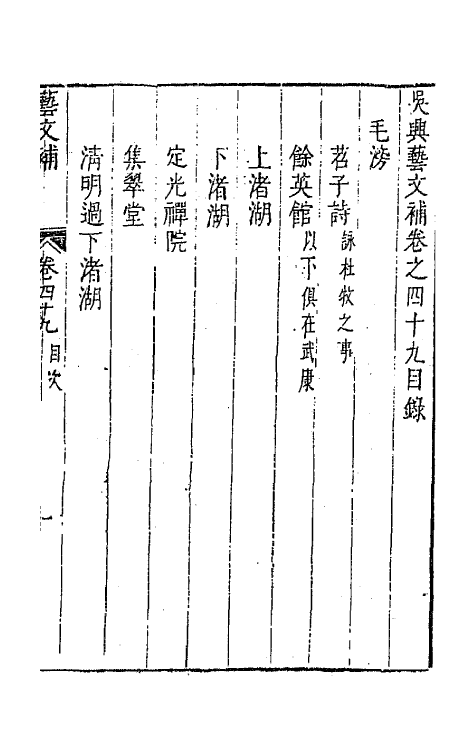 吳興藝文補卷之四十九目錄
毛滂
苕子詩 詠杜牧之事
餘英館 以下俱在武康
上渚湖
下渚湖
定光禪院
集翠堂
淸明過下渚湖
藝文補 卷四十九 目次 一